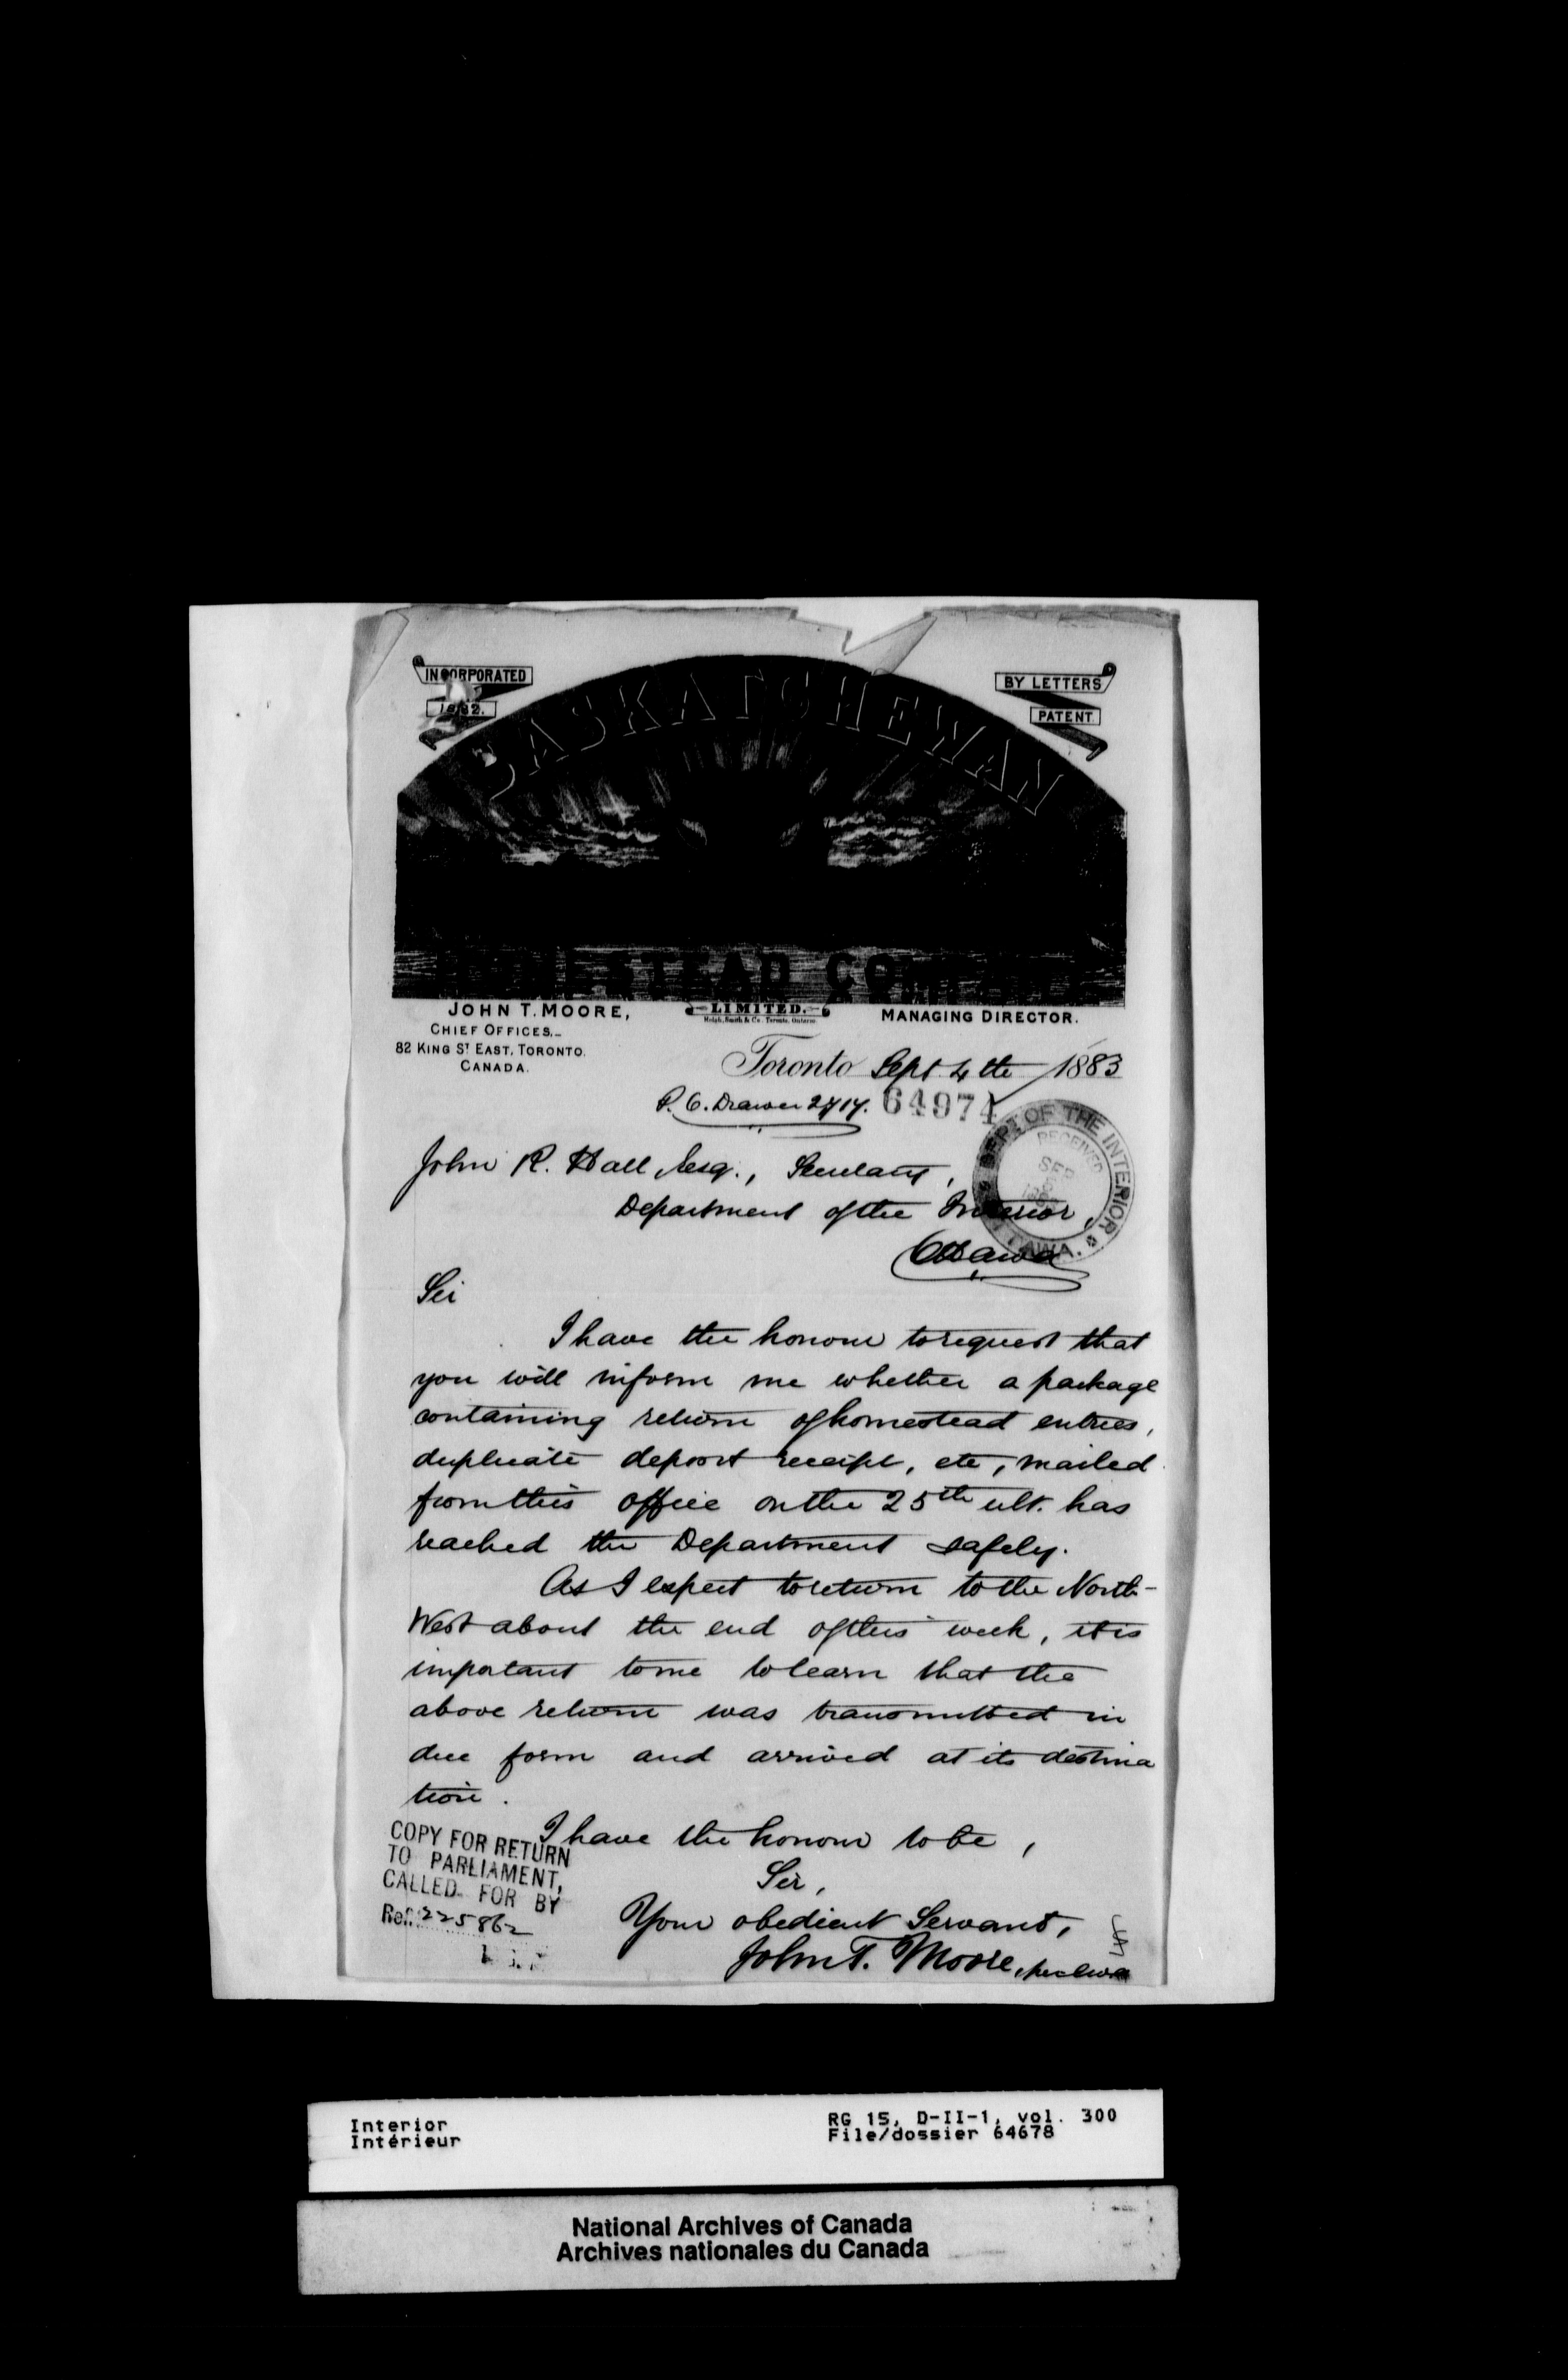 INCORPORATED
1882.
BY LETTERS
PATENT
SASKATCHEWAN
HOMESTEAD COMPANY
LIMITED.
Rolph, Smith & Co. Toronto, Ontario.
JOHN T. MOORE,
MANAGING DIRECTOR.
CHIEF OFFICES._
82 KING ST EAST, TORONTO.
CANADA.
Toronto Sept 4th 1883
P.O. Drawer 2717.
64974
DEPT OF THE INTERIOR
RECEIVED
SEP
OTTAWA.
John R. Hall, Esq., Secretary,
Department of the Interior,
Ottawa
Sir
I have the honour to request that
you will inform me whether a package
containing return of homestead entries,
duplicate deposit receipt, etc, mailed
from this office on the 25th ult. has
reached the Department safely.
As I expect to return to the North-
West about the end of this week, it is
important to me to learn that the
above return was transmitted in
due form and arrived at its destina
tion.
I have the honour to be,
Sir,
Your obedient Servant,
John T. Moore,
COPY FOR RETURN
TO PARLIAMENT,
CALLED FOR BY
Ref. 225862
Interior
Intérieur
RG 15, D-II-1, vol. 300
File/dossier 64678
National Archives of Canada
Archives nationales du Canada